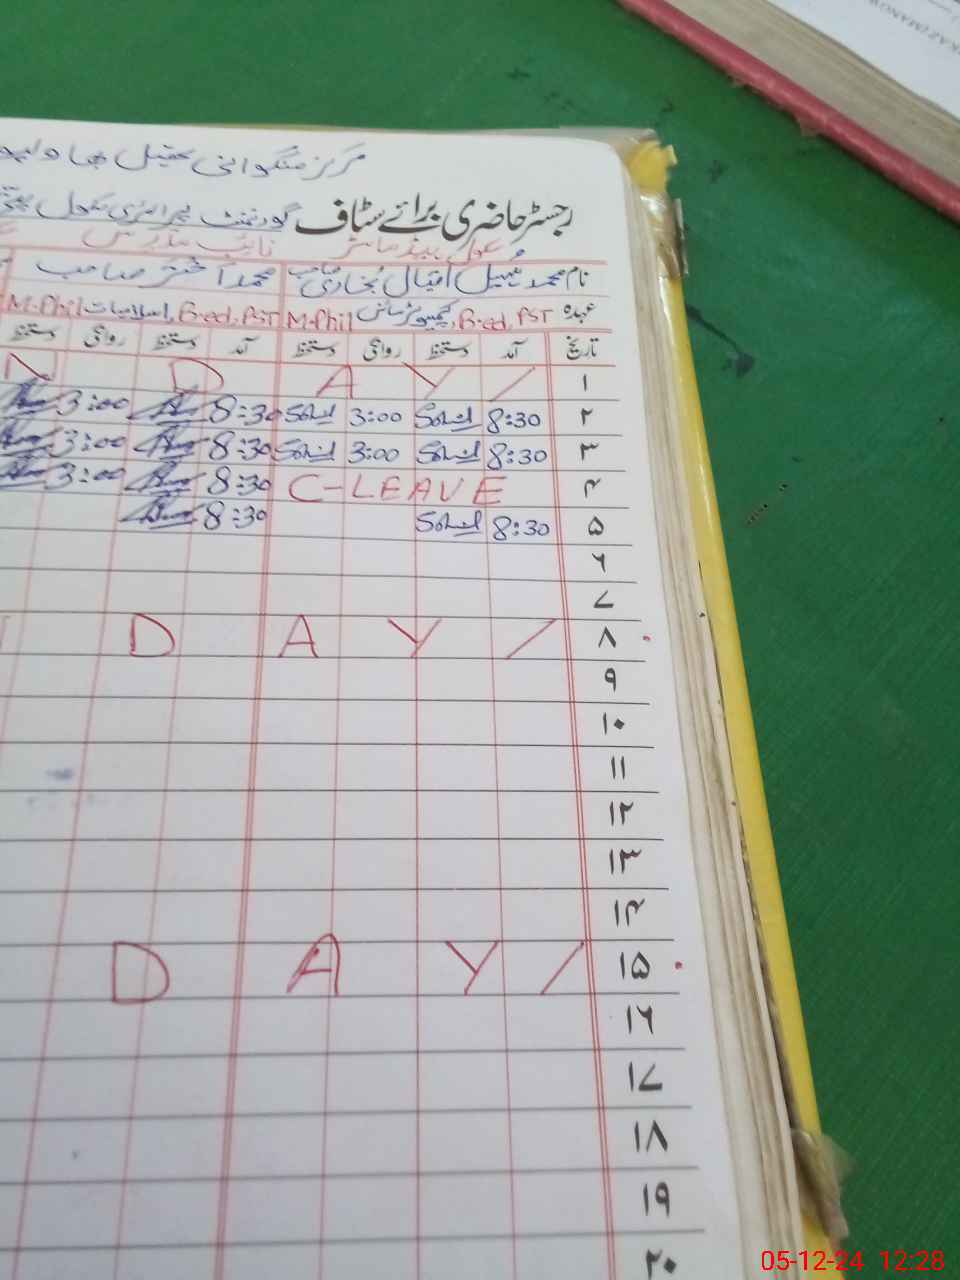 مرکز منگوانی تحصیل بہاولپور
رجسٹر حاضری برائے سٹاف گورنمنٹ پرائمری سکول
معلم ہیڈ ماسٹر نائب مدرس
نام محمد سہیل اقبال بخاری صاحب محمد اختر صاحب
عہدہ M.Phil کمپیوٹر سائنس, B.ed, PST M.Phil اسلامیات, B.ed, PST
تاریخ آمد دستخط روانگی دستخط آمد دستخط روانگی دستخط
۱ N D A Y /
۲ 8:30 Sohail 3:00 Sohail 8:30 3:00
۳ 8:30 Sohail 3:00 Sohail 8:30 3:00
۴ C-LEAVE 8:30 3:00
۵ 8:30 Sohail 8:30
۶
۷
۸ D A Y /
۹
۱۰
۱۱
۱۲
۱۳
۱۴
۱۵ D A Y /
۱۶
۱۷
۱۸
۱۹
۲۰
05-12-24 12:28